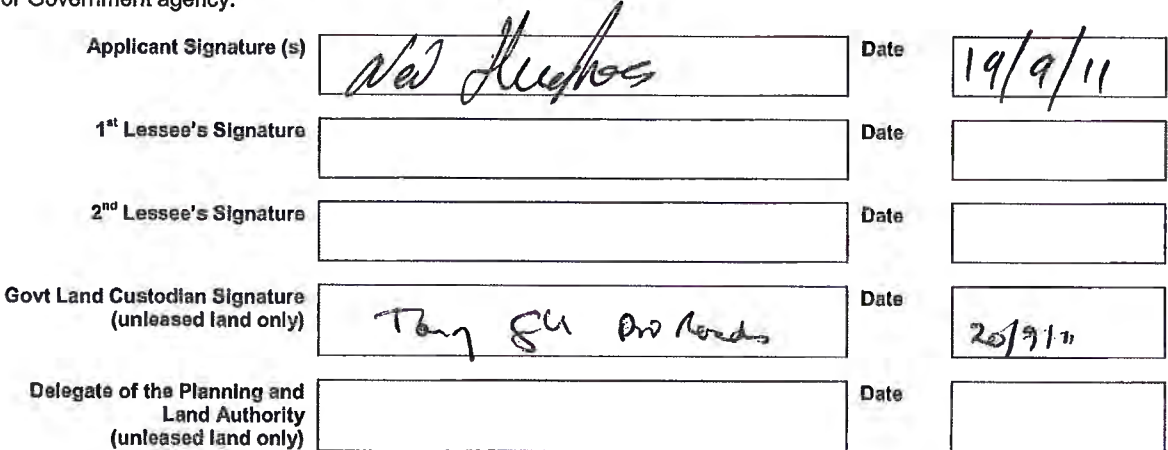 or Government agency.
Applicant Signature (s) Hughes Date 19/9/11
1st Lessee's Signature Date
2nd Lessee's Signature Date
Govt Land Custodian Signature
(unleased land only) Roads Date 20/9/11
Delegate of the Planning and
Land Authority
(unleased land only) Date